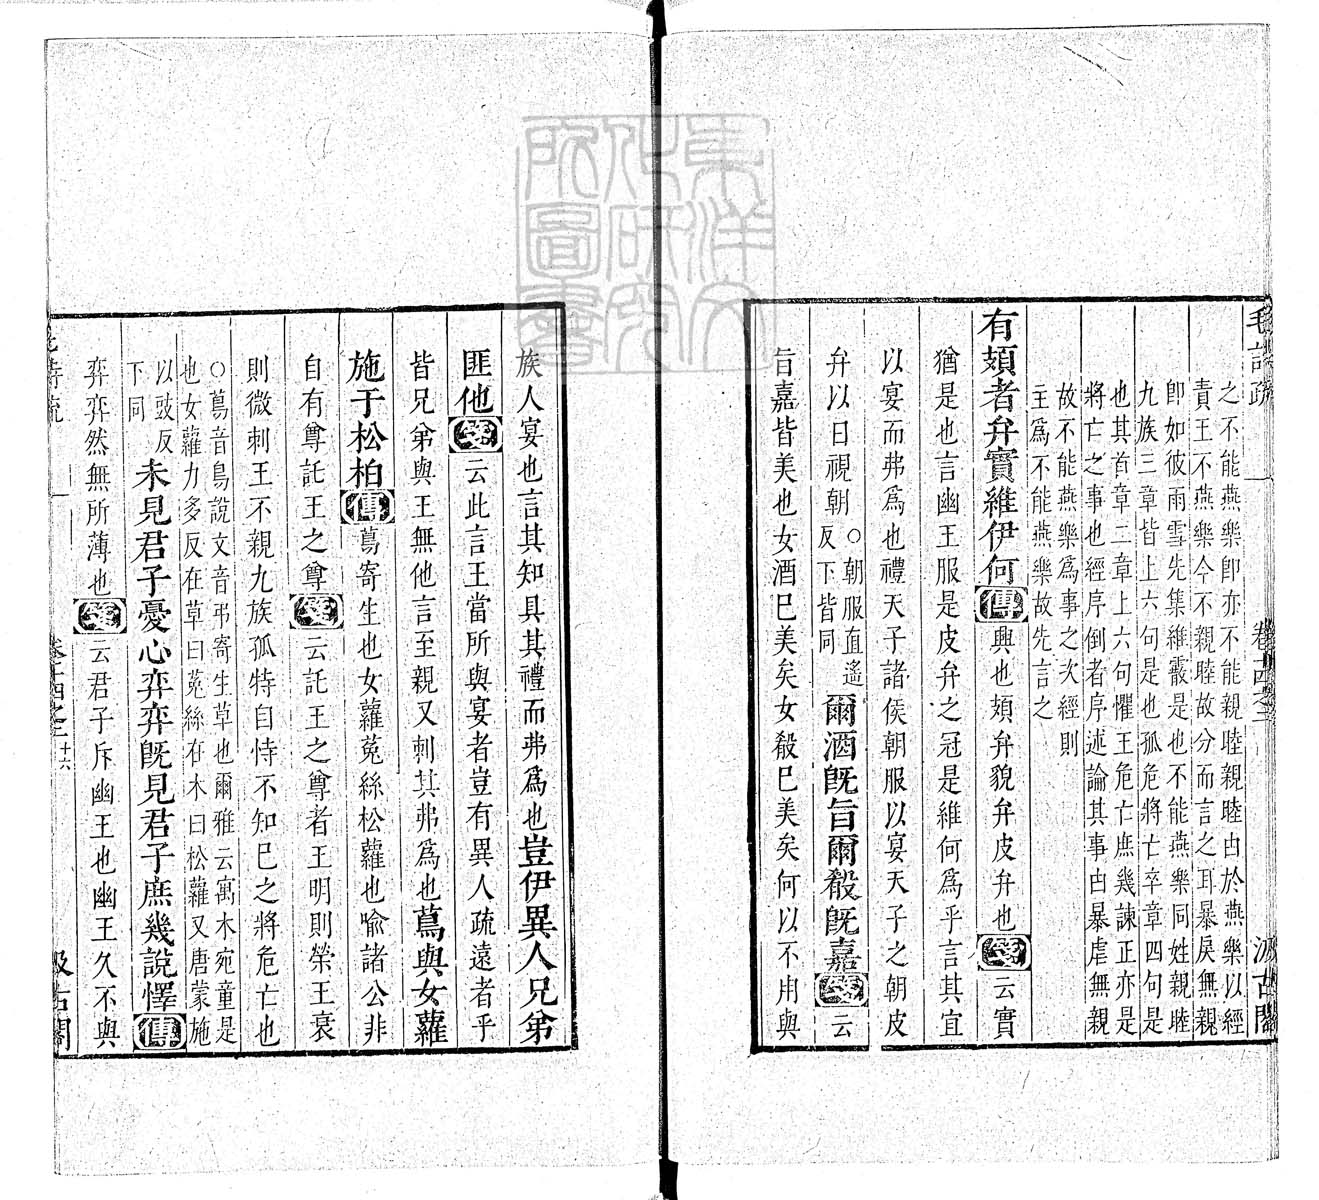 毛詩疏
卷十四之二
汲古閣
之不能燕樂卽亦不能親睦親睦由於燕樂以經
責王不燕樂今不親睦故分而言之耳暴戾無親
卽如彼雨雪先集維霰是也不能燕樂同姓親睦
九族三章皆上六句是也孤危將亡卒章四句是
也其首章二章上六句懼王危亡庶幾諫正亦是
將亡之事也經序倒者序述論其事由暴虐無親
故不能燕樂爲事之次經則
主爲不能燕樂故先言之
有頍者弁實維伊何傳興也頍弁貌弁皮弁也箋云實
猶是也言幽王服是皮弁之冠是維何爲乎言其宜
以宴而弗爲也禮天子諸侯朝服以宴天子之朝皮
弁以日視朝○朝服直遙
反下皆同
爾酒旣旨爾殽旣嘉箋云
旨嘉皆美也女酒已美矣女殽已美矣何以不用與
族人宴也言其知具其禮而弗爲也豈伊異人兄弟
匪他箋云此言王當所與宴者豈有異人疏遠者乎
皆兄弟與王無他言至親又刺其弗爲也蔦與女蘿
施于松柏傳蔦寄生也女蘿菟絲松蘿也喻諸公非
自有尊託王之尊箋云託王之尊者王明則榮王衰
則微刺王不親九族孤特自恃不知已之將危亡也
○蔦音鳥說文音弔寄生草也爾雅云寓木宛童是
也女蘿力多反在草曰菟絲在木曰松蘿又唐蒙施
以豉反
下同
未見君子憂心弈弈旣見君子庶幾說懌傳
弈弈然無所薄也箋云君子斥幽王也幽王久不與
毛詩疏
卷十四之二
十六
汲古閣
東洋文化研究所圖書